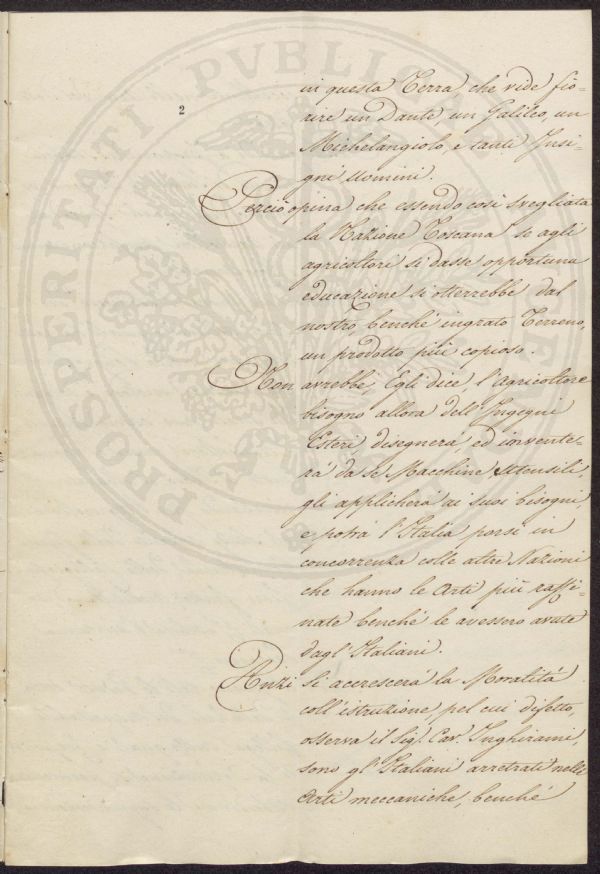 PROSPERITATI PVBLICAE
2
in questa Terra che vide fio-
rire un Dante, un Galileo, un
Michelangiolo, e tanti Insi-
gni Uomini.
Perciò opina che essendo così svegliata
la Nazione Toscana se agli
agricoltori si dasse opportuna
educazione si otterrebbe dal
nostro, benché ingrato Terreno,
un prodotto più copioso.
Non avrebbe, Egli dice, l'agricoltore
bisogno allora dell'Ingegni
Esteri, disegnerà, ed invente-
rà da se Macchine Utensili,
gli applicherà ai suoi bisogni,
e potrà l'Italia porsi in
concorrenza colle altre Nazioni
che hanno le Arti più raffi-
nate benché le avessero avute
dagl'Italiani.
Anzi si accrescerà la Moralità
coll'istruzione, pel cui difetto,
osserva il Sig.r Cav.r Inghirami,
sono gl'Italiani arretrati nelle
Arti meccaniche, benché